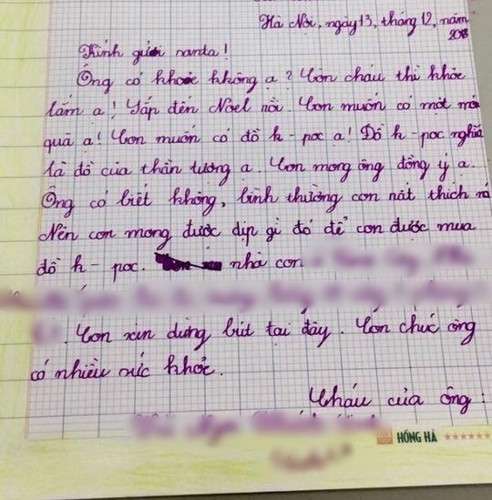 Hà Nội, ngày 13, tháng 12, năm
2018
Kính gửi nanta !
Ông có khoẻ không ạ ? Còn cháu thì khỏe
lắm ạ ! Sắp đên Noel rồi. Con muốn có một
quà ạ! Con muốn có đồ k-poc ạ! Đồ k-poc nghĩa
là đồ của thần tượng ạ. Con mong ông đồng ý ạ.
Ông có biết không, bình thường con nất thích
Nên con mong được dịp gì đó để con được mua
đồ k-poc. nhà con
Con xin dừng bút tại đây. Con chúc ông
có nhiều sức khỏe.
Cháu của ông :
HỒNG HÀ